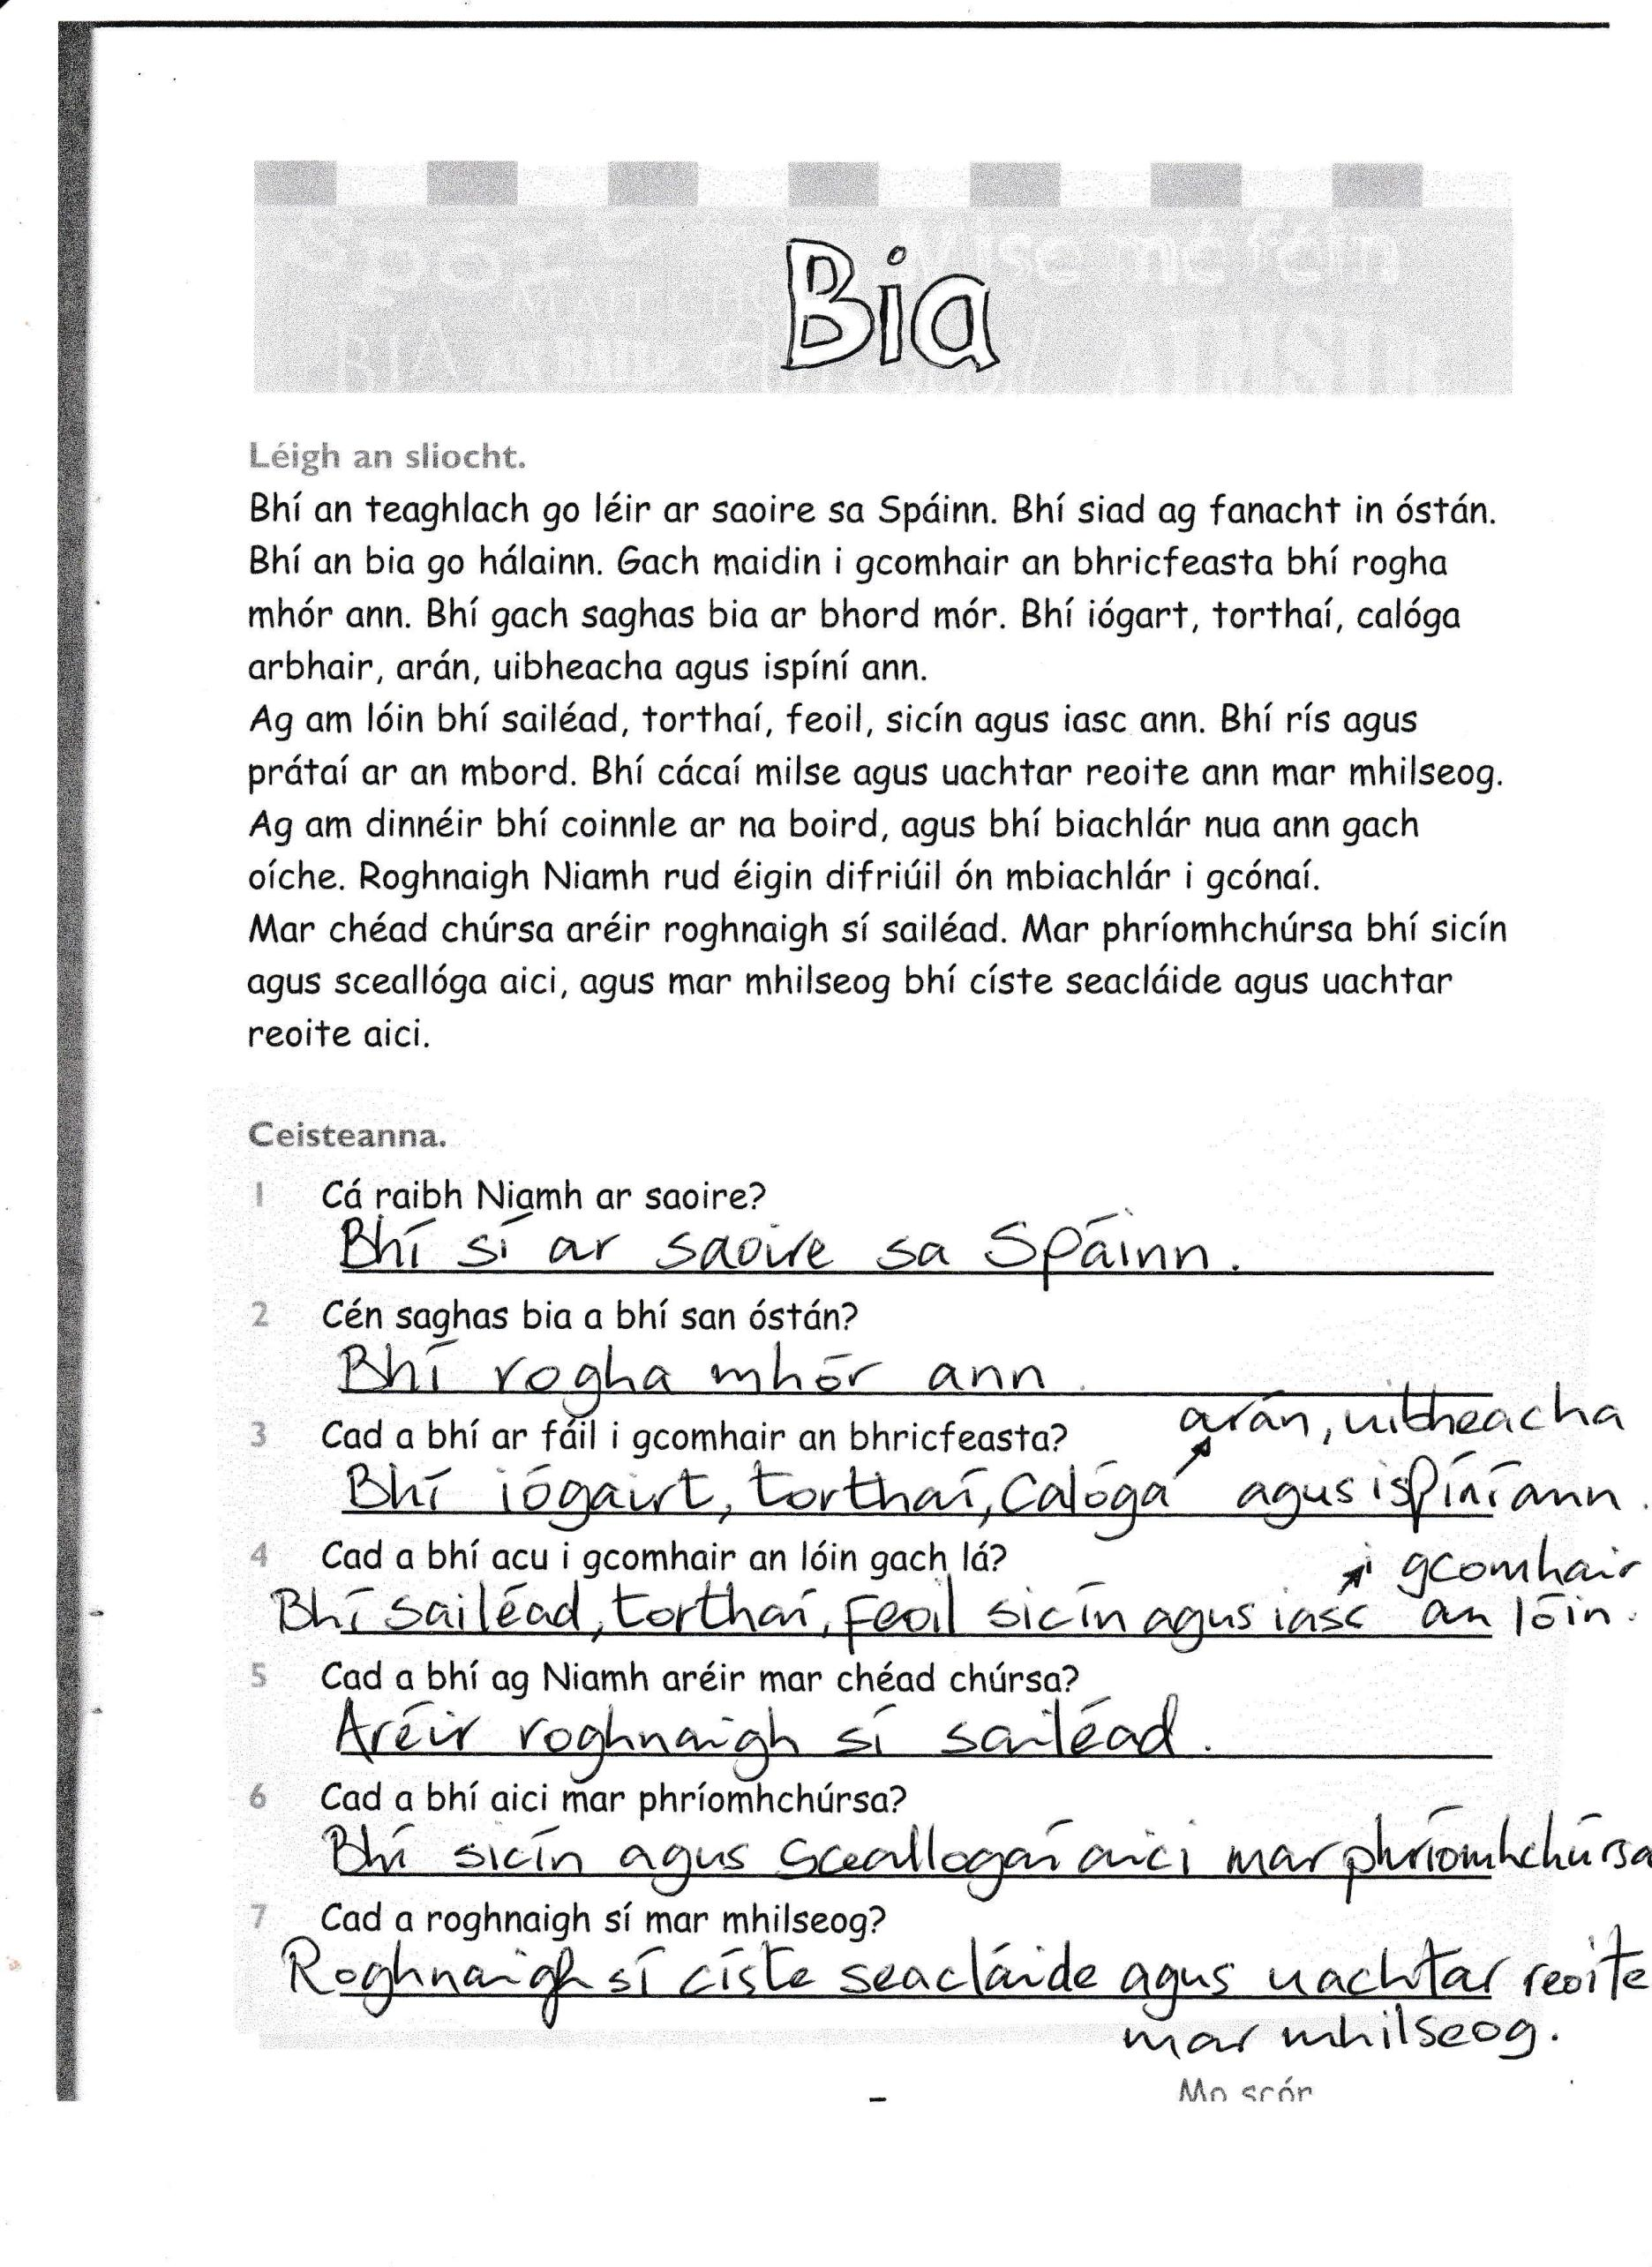 Bia
Léigh an sliocht.
Bhí an teaghlach go léir ar saoire sa Spáinn. Bhí siad ag fanacht in óstán.
Bhí an bia go hálainn. Gach maidin i gcomhair an bhricfeasta bhí rogha
mhór ann. Bhí gach saghas bia ar bhord mór. Bhí iógart, torthaí, calóga
arbhair, arán, uibheacha agus ispíní ann.
Ag am lóin bhí sailéad, torthaí, feoil, sicín agus iasc ann. Bhí rís agus
prátaí ar an mbord. Bhí cácaí milse agus uachtar reoite ann mar mhilseog.
Ag am dinnéir bhí coinnle ar na boird, agus bhí biachlár nua ann gach
oíche. Roghnaigh Niamh rud éigin difriúil ón mbiachlár i gcónaí.
Mar chéad chúrsa aréir roghnaigh sí sailéad. Mar phríomhchúrsa bhí sicín
agus sceallóga aici, agus mar mhilseog bhí císte seacláide agus uachtar
reoite aici.
Ceisteanna.
1 Cá raibh Niamh ar saoire?
Bhí sí ar saoire sa Spáinn.
2 Cén saghas bia a bhí san óstán?
Bhí rogha mhór ann.
3 Cad a bhí ar fáil i gcomhair an bhricfeasta?
arán, uibheacha
Bhí iógairt, torthaí, Calóga agus ispíní ann.
4 Cad a bhí acu i gcomhair an lóin gach lá?
i gcomhair
Bhí sailéad, torthaí, feoil sicín agus iasc an lóin.
5 Cad a bhí ag Niamh aréir mar chéad chúrsa?
Aréir roghnaigh sí sailéad.
6 Cad a bhí aici mar phríomhchúrsa?
Bhí sicín agus sceallogaí aici mar phríomhchúrsa
7 Cad a roghnaigh sí mar mhilseog?
Roghnaigh sí císte seacláide agus uachtar reoite
mar mhilseog.
Mo scór